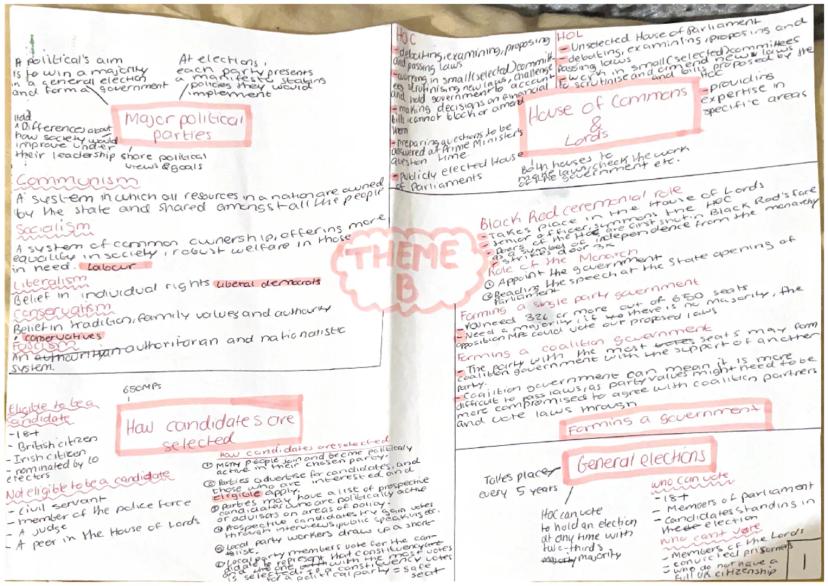 A political's aim
is to win a majority
in a general election
and form a government
At elections,
each party presents
a manifesto stating
policies they would
implement
Major political
parties
Differences about
how society would
improve under
their leadership
share political
views & goals
Communism
A system in which all resources in a nation are owned
by the state and shared amongst all the people
Socialism
A system of common ownership, offering more
equality in society, robust welfare in those
in need. Labour
Liberalism
Belief in individual rights Liberal democrats
Conservatism
Belief in tradition, family values and authority
conservatives
Fascism
An authoritarian and nationalistic
system.
THEME
B
650MPs
How candidates are
selected
Eligible to be a
candidate
- 18+
- British citizen
- Irish citizen
- nominated by 10
electors
Not eligible to be a candidate
- civil servant
- member of the police force
- A judge
- A peer in the House of Lords
How candidates are selected
① Many people join and become politically
active in their chosen party.
② Parties advertise for candidates, and
those who are interested and
eligible apply.
③ Parties may have a list of prospective
candidates who are politically active
or advisors on areas of policy.
④ Prospective candidates try gain votes
through interviews, public speaking etc.
⑤ Local party workers draw up a short-
list.
⑥ Local party members vote for the can-
didate to represent that constituency
and the one with the most votes
is selected
for a political party = safe
seat
HOC
- debating, examining, proposing
and passing laws
- working in small (selected) committ
ees scrutinising new laws, challenge
and hold government to account
- making decisions on financial
bills cannot block or amend
them
- preparing questions to be
answered at Prime Minister's
question time
- Publicly elected House
of Parliaments
HOL
- Unselected House of Parliament
- debating, examining, proposing and
passing laws
- work in small (selected) committees
to scrutinise and amend new laws
and bills proposed by the
HOC
- providing
expertise in
specific areas
House of Commons
&
Lords
Both houses to
make laws, check the work
of the government etc.
Black Rod ceremonial role
- Takes place in the House of Lords
- senior officer summons the HOC
- doors of the HOC are first shut in Black Rod's face
as a symbol of independence from the monarchy
- strikes door 3x
Role of the Monarch
① Appoint the government
② Reading the speech at the state opening of
Parliament
Forming a single party government
- You need 326 or more out of 650 seats
- Need a majority, if there is no majority, the
opposition MPs could vote out proposed laws
Forming a coalition government
- The party with the most seats may form
coalition government with the support of another
party.
- Coalition government can mean it is more
difficult to pass laws, as party values might need to be
more compromised to agree with coalition partners
and vote laws through
Forming a government
General elections
Takes place
every 5 years
HOC can vote
to hold an election
at any time with
two-third's
majority
who can vote
- 18+
- Members of parliament
- candidates standing in
the election
who can't vote
- Members of the Lords
- convicted prisoners
- who do not have a
full UK citizenship
1